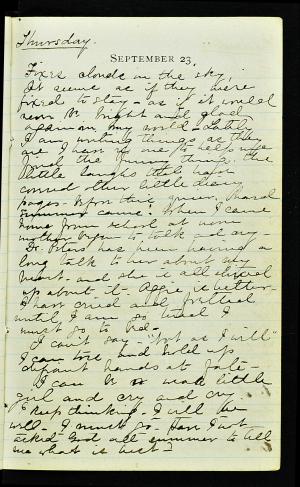 Thursday.
SEPTEMBER 23,
clouds in the sky,
It seems as if they were
fixed to stay - as if it would
never be bright and glad
again in my world - daddy
I am writing things as they
are I have no to help me
find the funny things the
little laughs that have
covered other little diary
pages before this queer, hard
summer came. When I came
home from school at noon
mother began to talk and cry
Dr. Peters has been having a
long talk to her about my
heart - and she is all stirred
up about it - is better -
I have cried and fretted
until I am so tired I
must go to bed -
I can't say - "Not as I will"
I can and hold up
defiant hands at fate -
I can be a weak little
girl and cry and cry
I keep thinking - I will be
well - I must go - I not
asked God all summer to tell
me what is best -